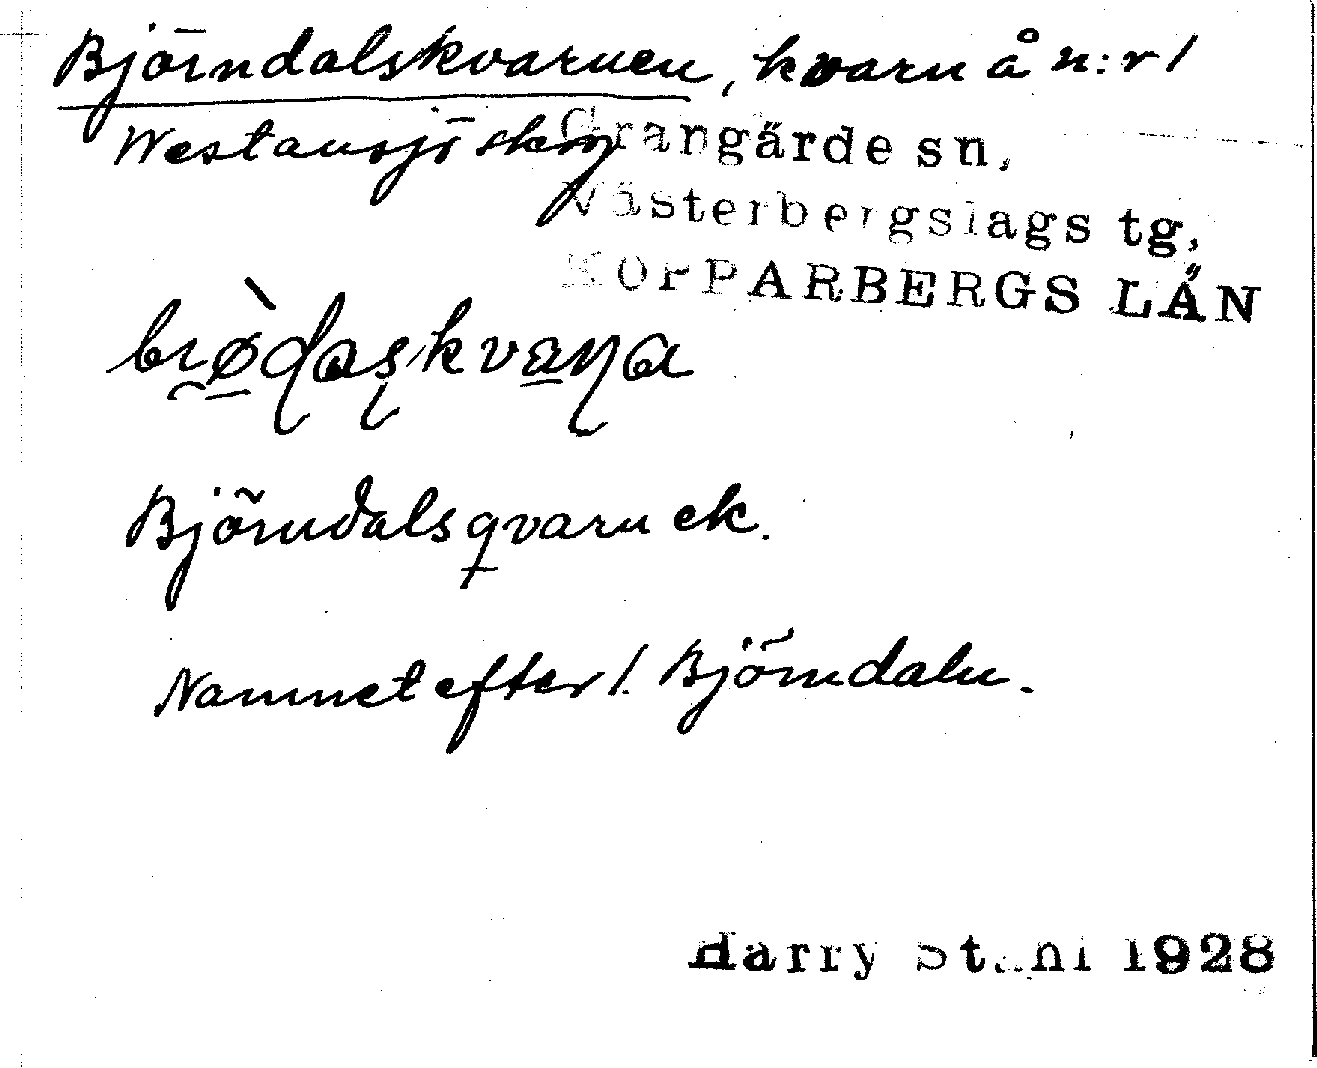 Björndalskvarnen, kvarn å n:r 1
Westansjö skog
Grangärde sn,
Västerbergslags tg,
KOPPARBERGS LÄN
Björndalsqvarn ek.
Namnet efter l. Björndalen.
Harry Ståhl 1928